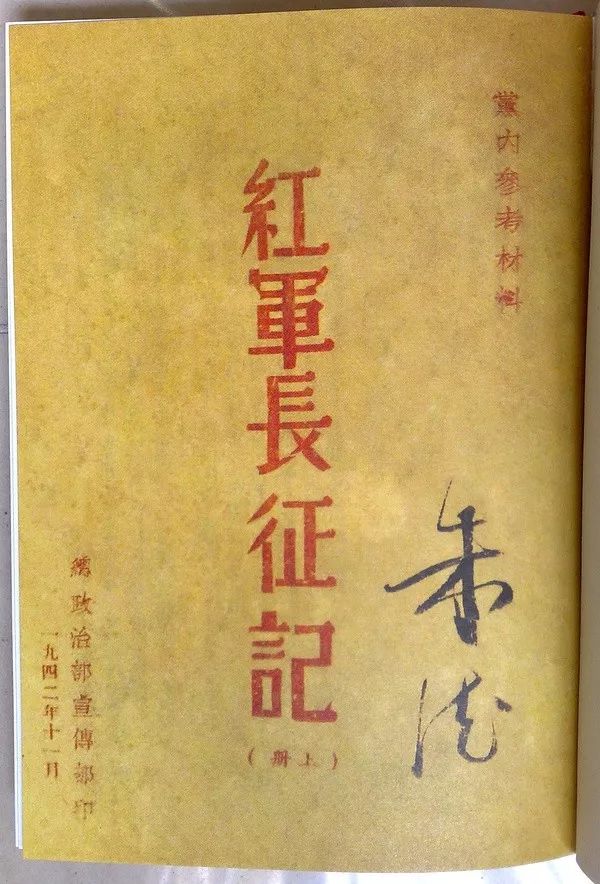 黨内參考材料
紅軍長征記
（上册）
朱德
總政治部宣傳部印
一九四二年十一月